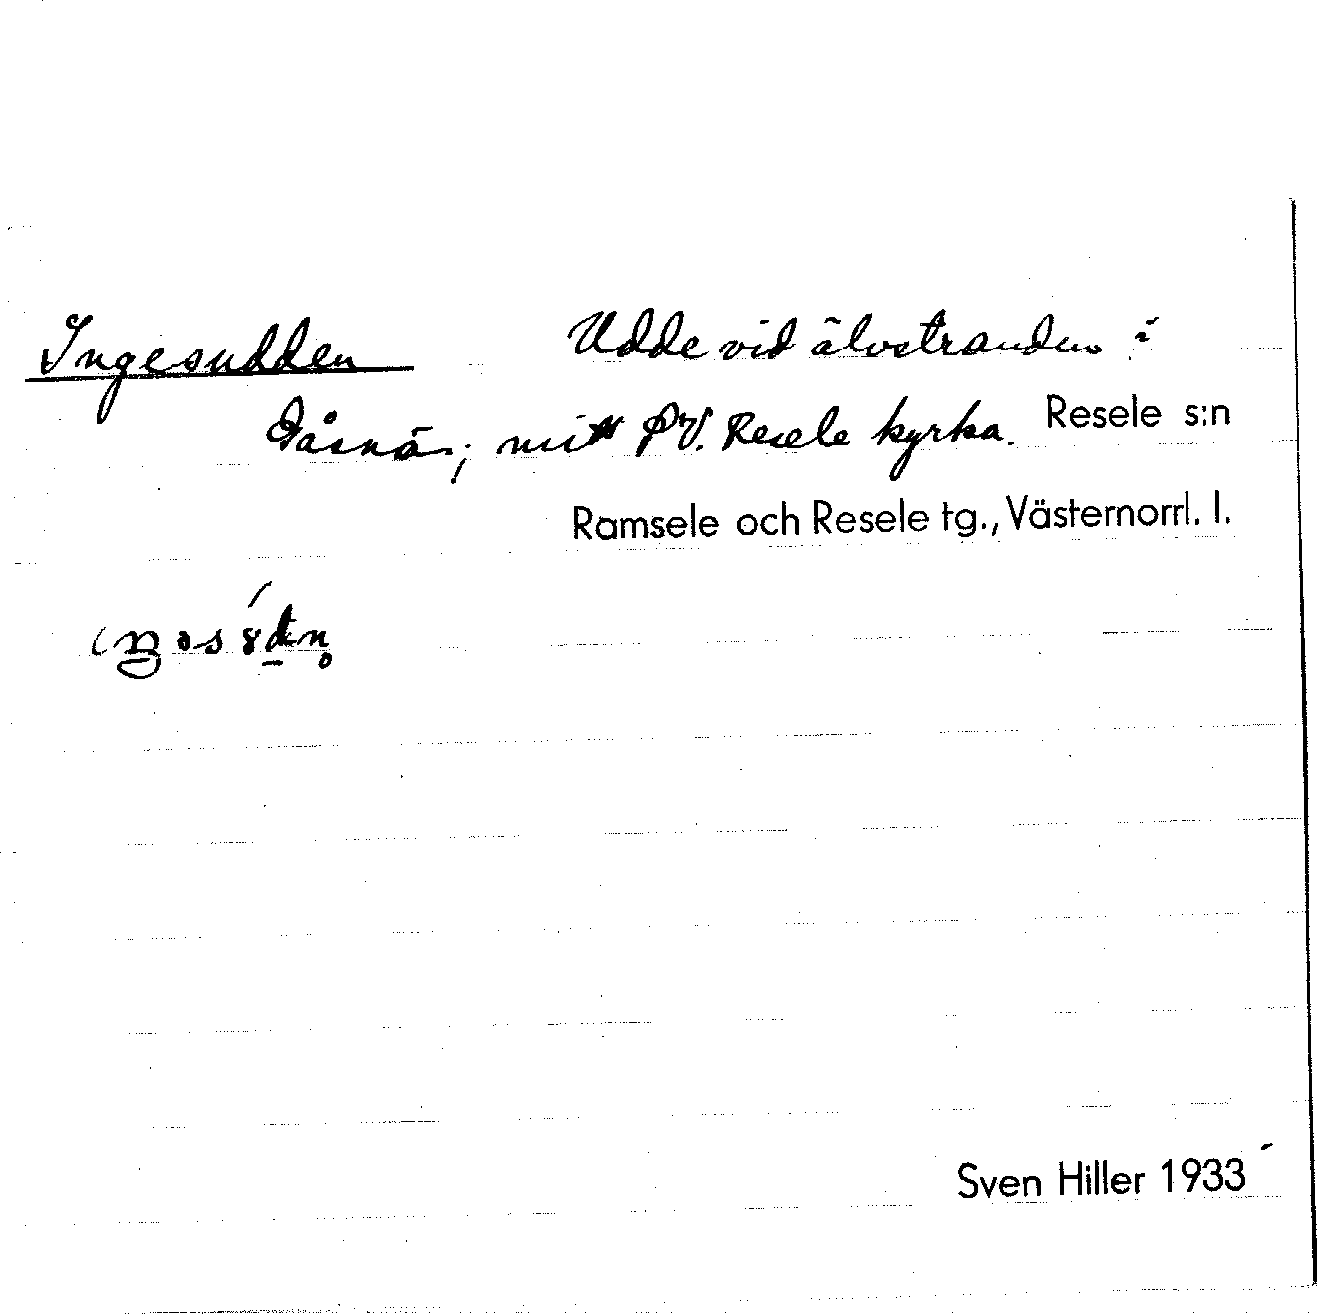 Ingesudden Udde vid älvstranden i
Gåsnäs, mitt f V. Resele kyrka. Resele s:n
Ramsele och Resele tg., Västernorrl. l.
Sven Hiller 1933